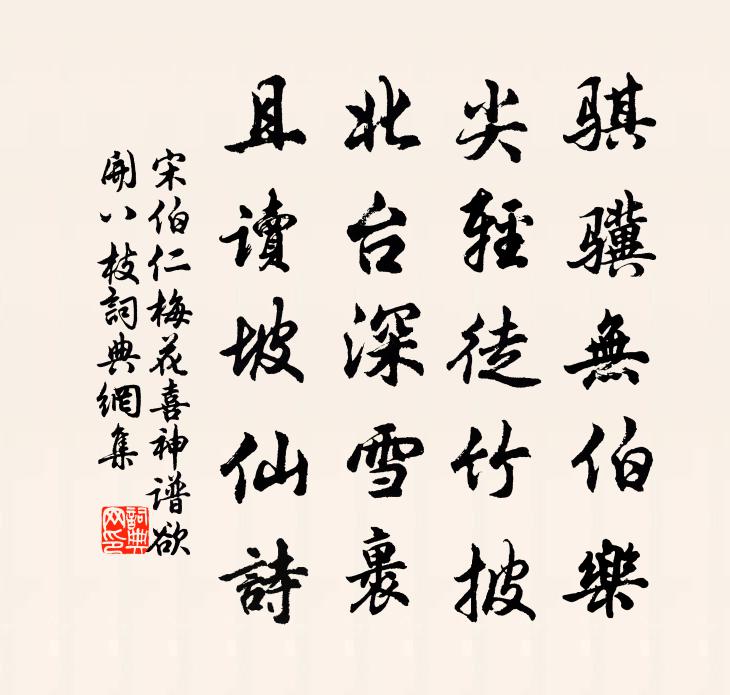 骐骥無伯樂
尖輕徒竹披
北台深雪裹
且讀坡仙詩
宋伯仁梅花喜神谱欲
開八枝詞典網集
詞典网印